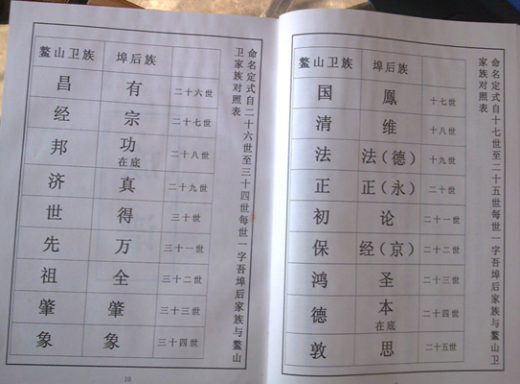 命名定式自十七世至二十五世每世一字吾埠后家族与鳌山卫
家族对照表
鳌山卫族 埠后族
国 鳳 十七世
清 维 十八世
法 法（德） 十九世
正 正（永） 二十世
初 论 二十一世
保 经（京） 二十二世
鸿 圣 二十三世
德 本 二十四世
在底
敦 思 二十五世
命名定式自二十六世至三十四世每世一字吾埠后家族与鳌山
卫家族对照表
鳌山卫族 埠后族
昌 有 二十六世
经 宗 二十七世
邦 功 二十八世
在底
济 真 二十九世
世 得 三十世
先 万 三十一世
祖 全 三十二世
肇 肇 三十三世
象 象 三十四世